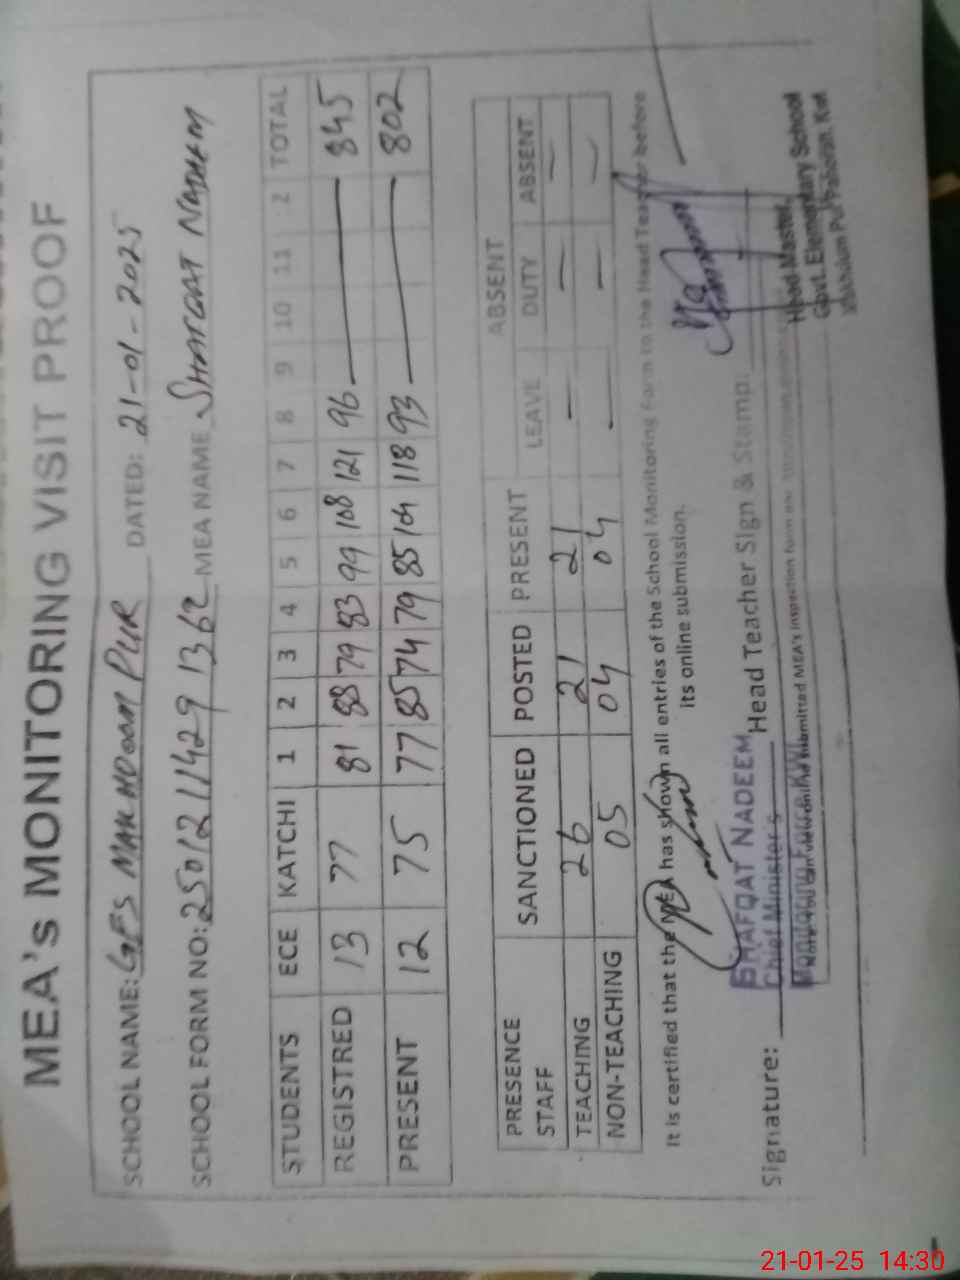 MEA's MONITORING VISIT PROOF
SCHOOL NAME: GES MAKHDOOM PUR DATED: 21-01-2025
SCHOOL FORM NO: 25012114291362 MEA NAME SHAFQAT NADEEM
STUDENTS ECE KATCHI 1 2 3 4 5 6 7 8 9 10 11 12 TOTAL
REGISTRED 13 77 81 88 79 83 99 108 121 96 — 845
PRESENT 12 75 77 85 74 79 85 104 118 93 — 802
PRESENCE SANCTIONED POSTED PRESENT ABSENT
STAFF LEAVE DUTY ABSENT
TEACHING 26 21 21 — — —
NON-TEACHING 05 04 04 — — —
It is certified that the MEA has shown all entries of the School Monitoring Form to the Head Teacher before
its online submission.
SHAFQAT NADEEM
Chief Minister's
Monitoring Force
Signature: Head Teacher Sign & Stamp:
Head Master
Govt. Elementary School
submitted MEA's inspection form
21-01-25 14:30